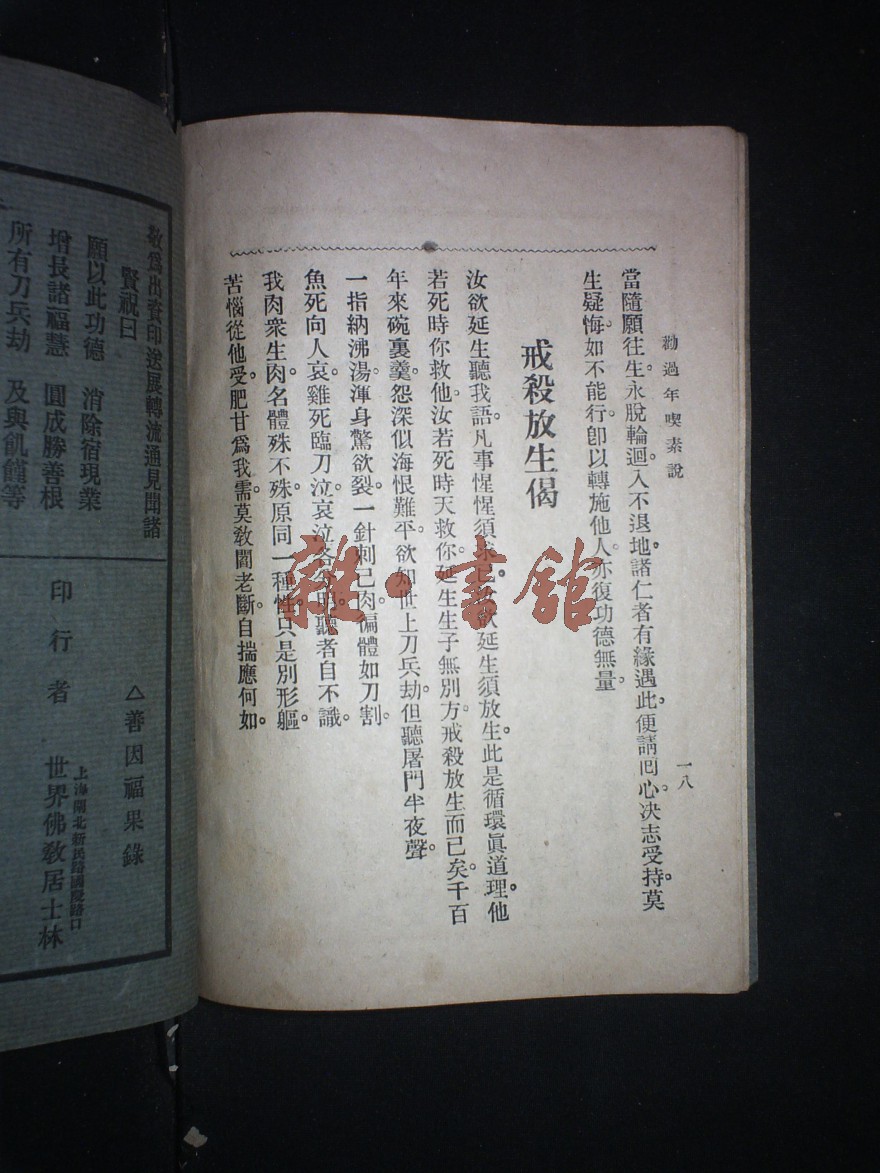 勸過年喫素說
一八
當隨願往生。永脫輪迴。入不退地。諸仁者有緣遇此。便請回心。决志受持。莫
生疑悔。如不能行。卽以轉施他人。亦復功德無量。
戒殺放生偈
汝欲延生聽我語。凡事惺惺須求己。汝欲延生須放生。此是循環眞道理。他
若死時你救他。汝若死時天救你。延生生子無別方。戒殺放生而已矣。千百
年來碗裏羹。怨深似海恨難平。欲知世上刀兵劫。但聽屠門半夜聲。
一指納沸湯。渾身驚欲裂。一針刺己肉。徧體如刀割。
魚死向人哀。雞死臨刀泣。哀泣各分明。聽者自不識。
我肉衆生肉。名體殊不殊。原同一種性。只是別形軀。
苦惱從他受。肥甘爲我需。莫敎閻老斷。自揣應何如。
敬爲出資印送展轉流通見聞諸
賢祝曰
願以此功德 消除宿現業
增長諸福慧 圓成勝善根
所有刀兵劫 及與飢饉等
△善因福果錄
印行者
上海閘北新民路國慶路口
世界佛敎居士林
雜·書館